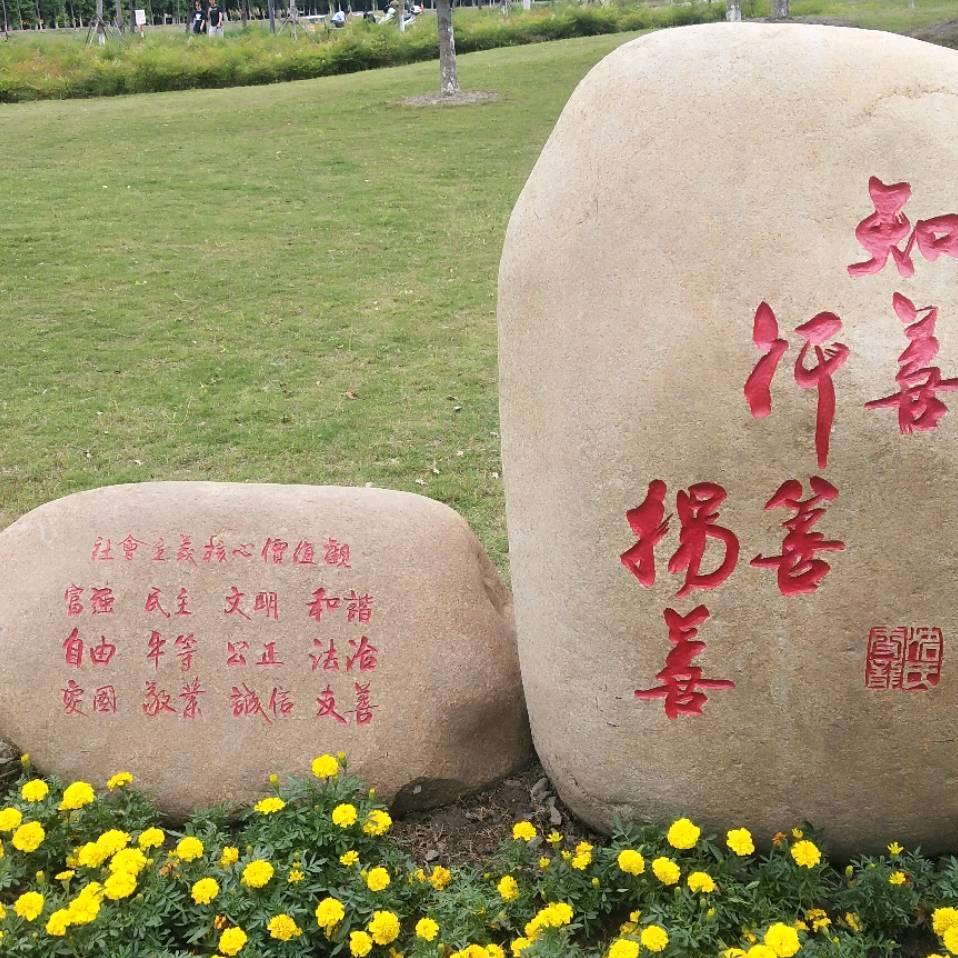 社會主義核心價值觀
富强 民主 文明 和諧
自由 平等 公正 法治
愛國 敬業 誠信 友善
知善
行善
揚善